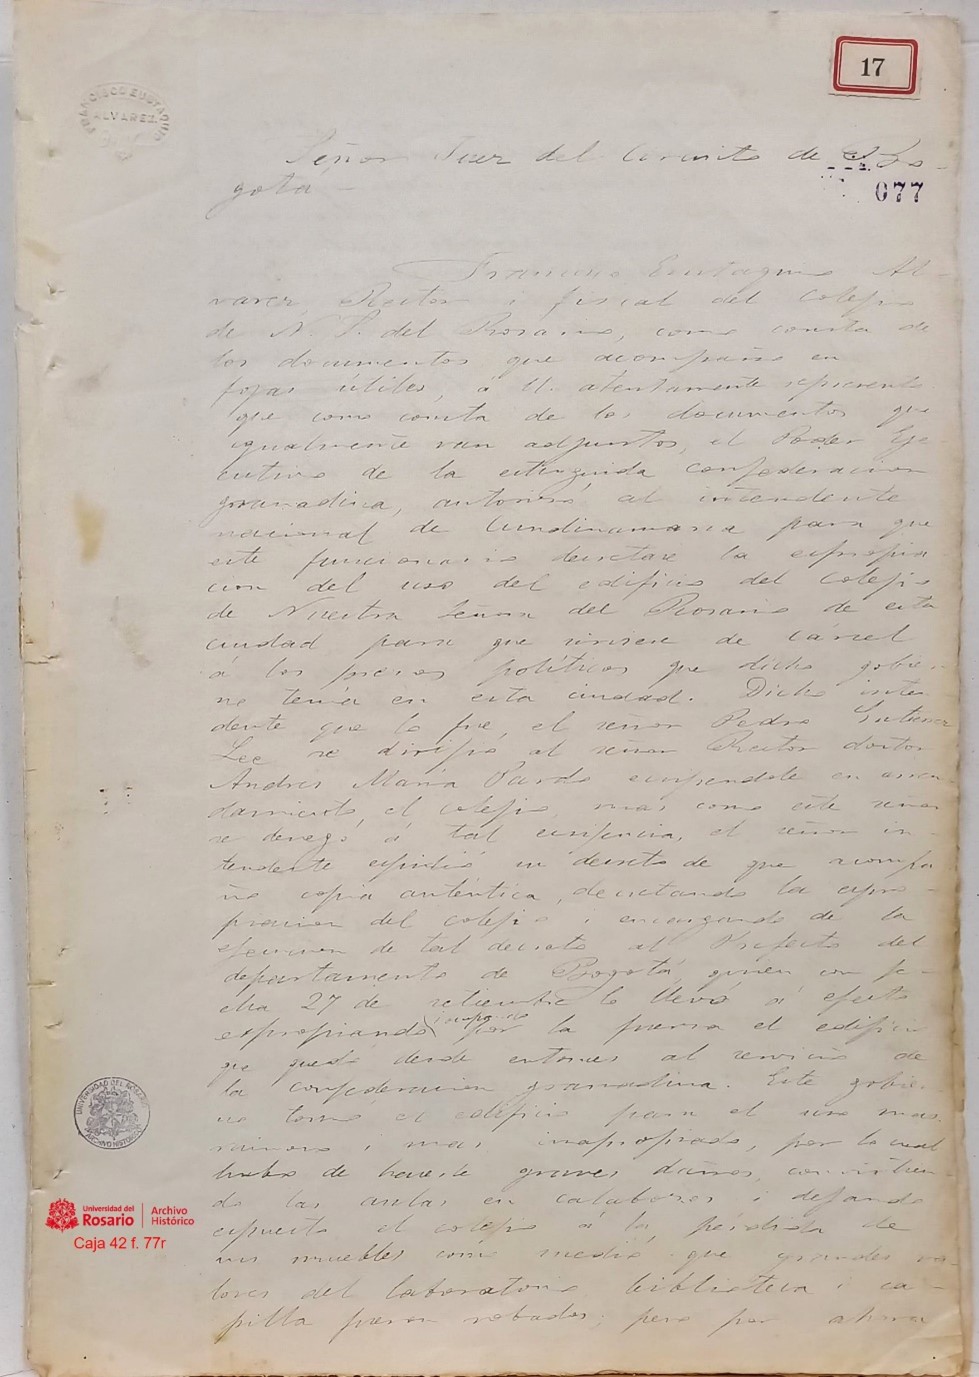 17
FRANCISCO EUSTAQUIO
ALVAREZ
Señor Juez del Circuito de Bo-
gotá -
077
Francisco Eustaquio Al-
varez, Rector i fiscal del Colejio
de N. S. del Rosario, como consta de
los documentos que acompaño en
fojas útiles, á U. atentamente represento
que como consta de los documentos que
igualmente van adjuntos, el Poder Eje-
cutivo de la estinguida confederacion
granadina, autorizó al intendente
nacional de Cundinamarca para que
este funcionario decretase la espropia-
cion del uso del edificio del Colejio
de Nuestra Señora del Rosario de esta
ciudad para que sirviese de cárcel
á los presos políticos que dicho gobier-
no tenía en esta ciudad. Dicho inten-
dente que lo fué, el señor Pedro Gutierrez
Lee se dirijió al señor Rector doctor
Andres María Pardo en arren-
damiento, el colejio, mas como este señor
se denegó á tal exijencia, el señor in-
tendente espidió un decreto de que acompa-
ño copia auténtica, decretando la espro-
piacion del colejio i encargando de la
ejecucion de tal decreto al Prefecto del
departamento de Bogotá, quien con fe-
cha 27 de setiembre lo llevó á efecto
expropiando por la fuerza el edificio
que quedó desde entonces al servicio de
la confederacion granadina. Este gobier-
no tomó el edificio para el uso mas
ruinoso i mas inapropiado, por lo cual
hubo de hacerle graves daños, convirtien-
do las aulas en calabozos i dejando
espuesto el colejio á la pérdida de
sus muebles como medio que grandes va-
lores del laboratorio biblioteca i ca-
pilla fueron robados; pero por ahora
UNIVERSIDAD DEL ROSARIO
ARCHIVO HISTÓRICO
Universidad del
Rosario
Archivo
Histórico
Caja 42 f. 77r